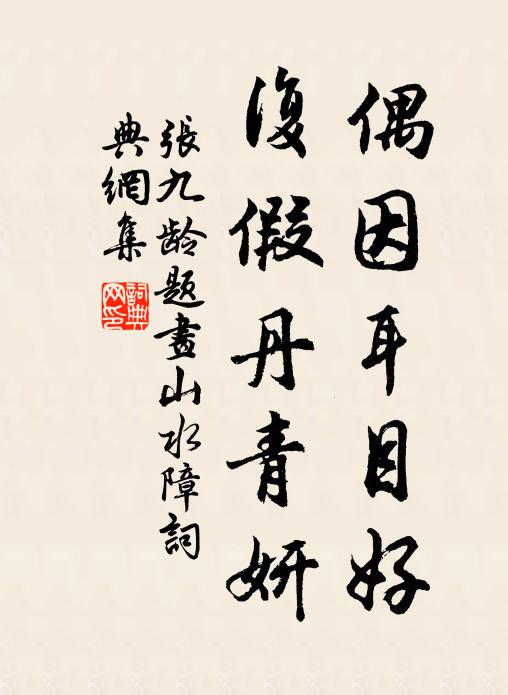 偶因耳目好
復假丹青妍
張九龄题畫山水障詞
典網集
詞典
网印